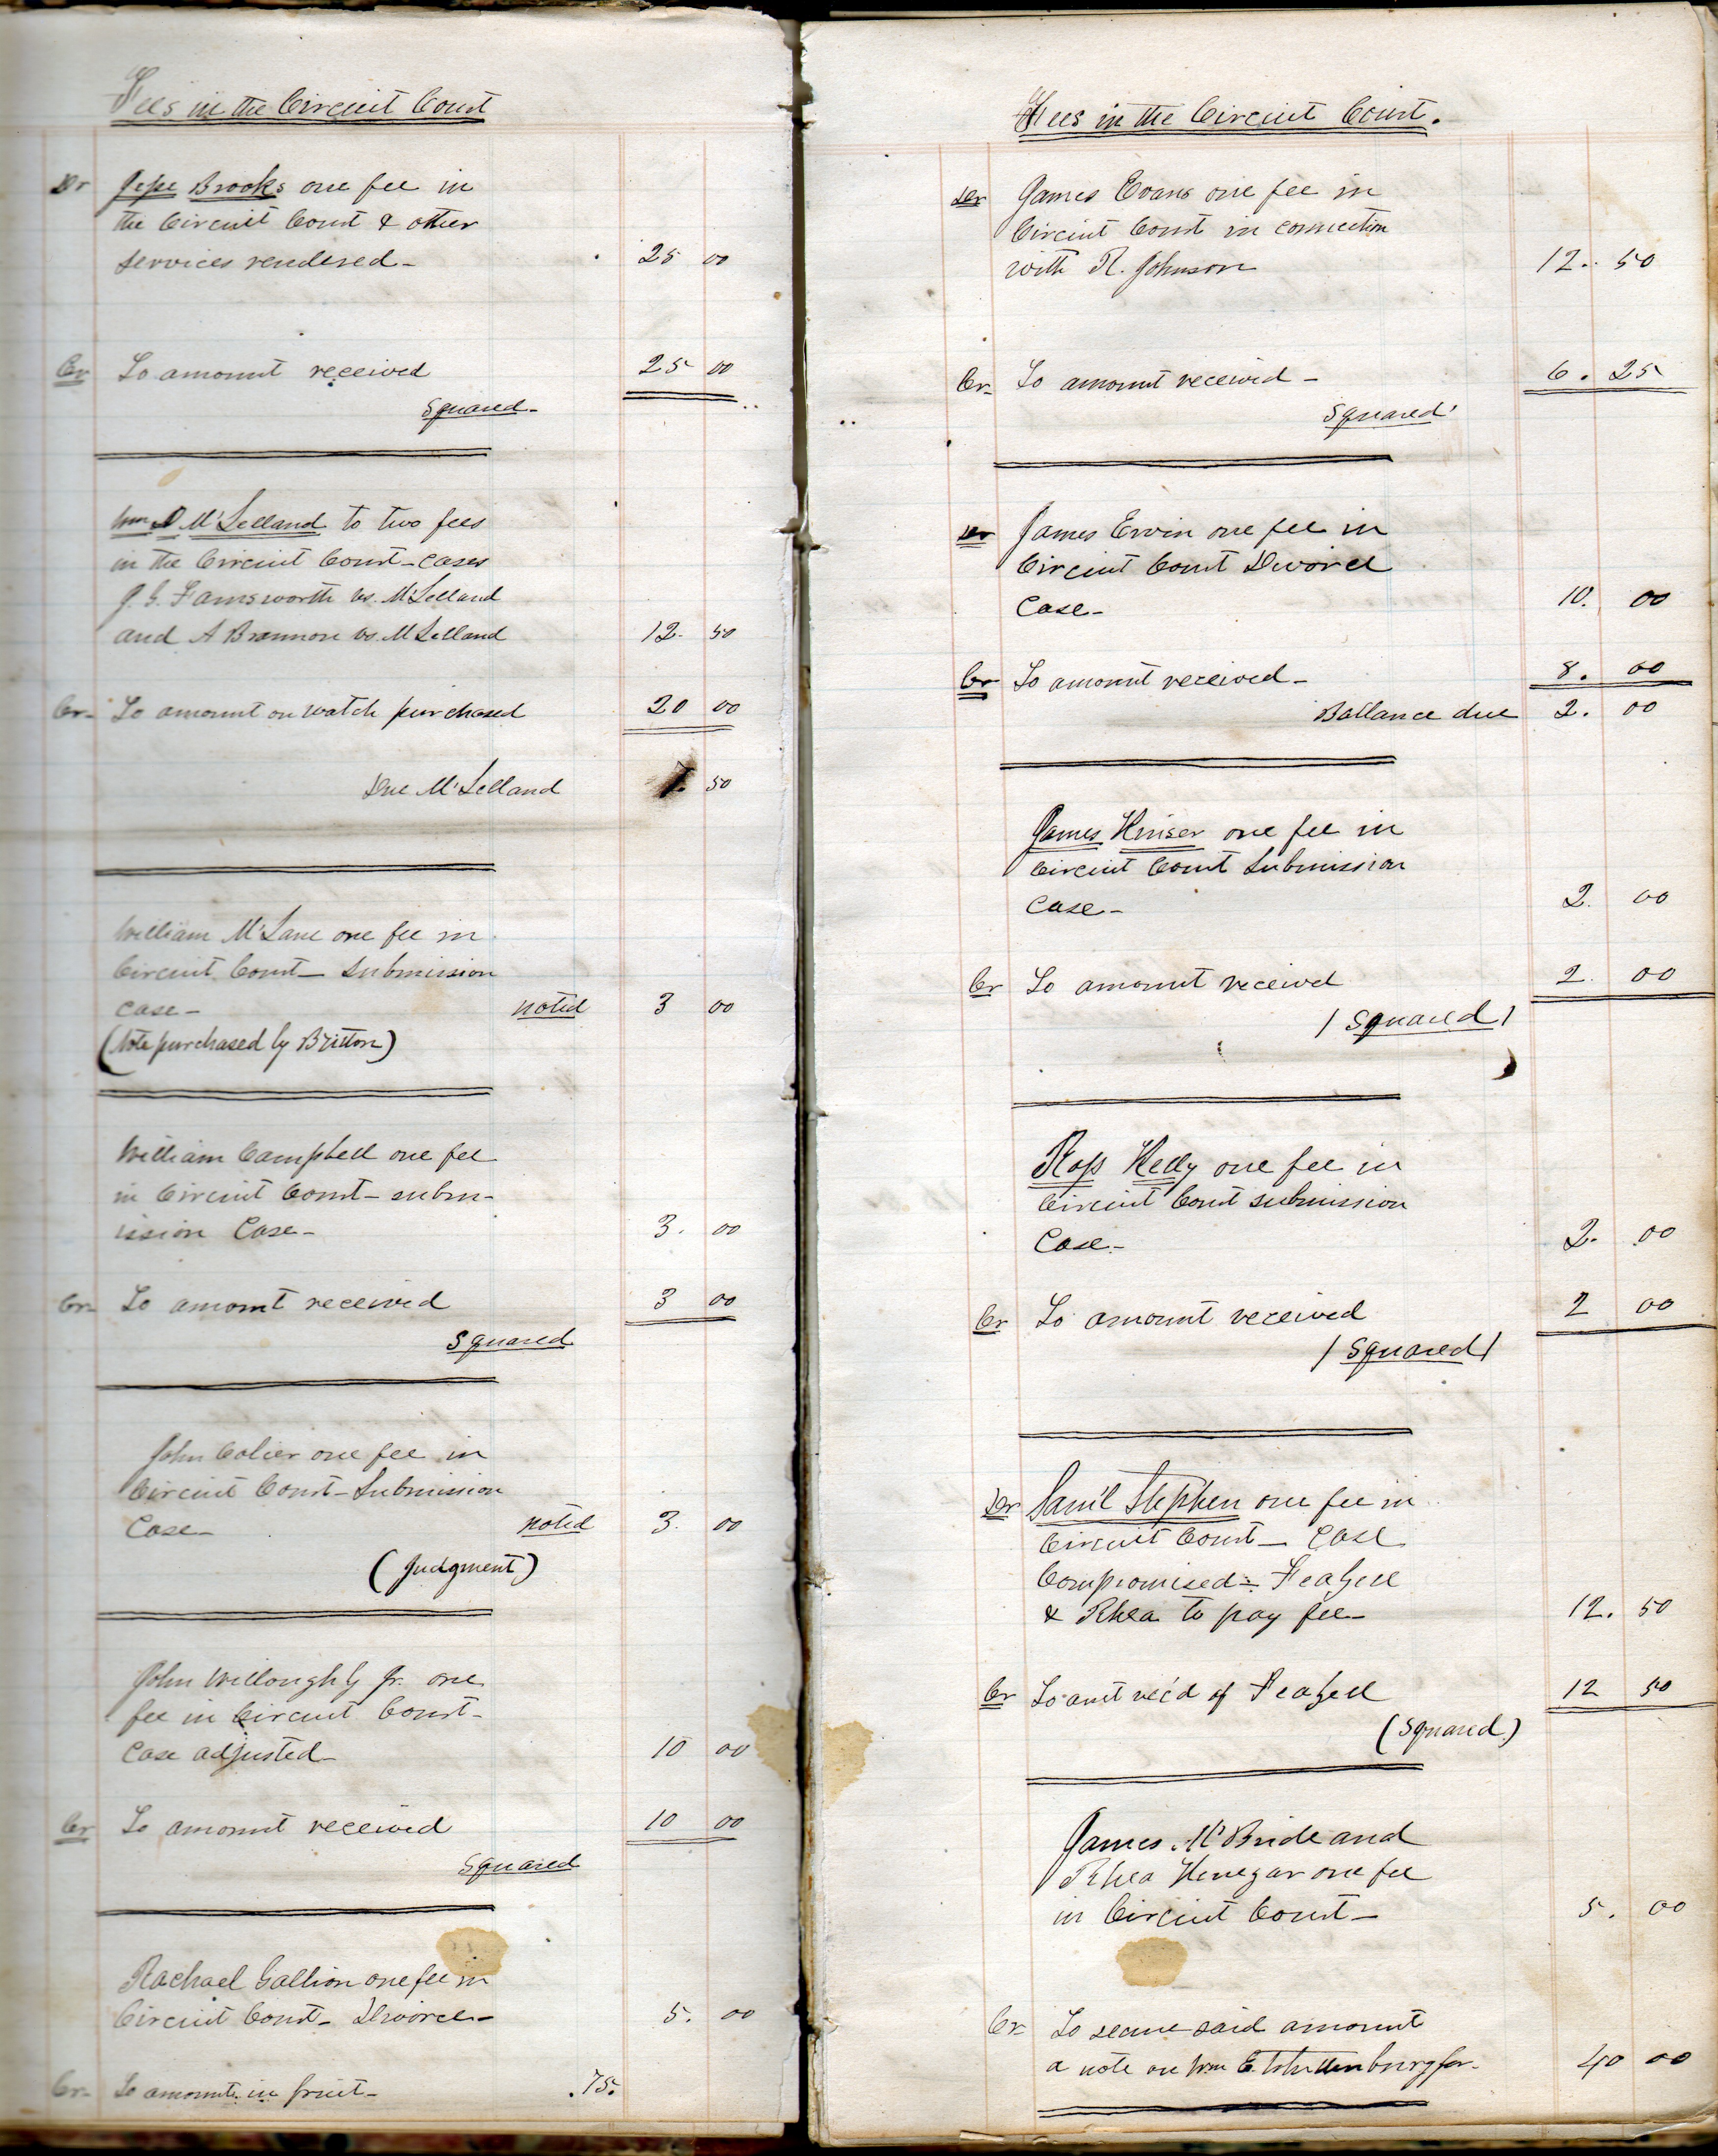 Fees in the Circuit Court
Dr Jesse Brooks one fee in
the Circuit Court & other
services rendered- 25 00
Cr To amount received 25 00
Squared-
Wm D McLelland to two fees
in the Circuit Court-cases
J. G. Farnsworth vs. McLelland
and A Brannon vs. McLelland 12. 50
Cr- To amount on watch purchased 20 00
Due McLelland 7. 50
William McLane one fee in
Circuit Court- Submission
case- noted 3 00
(Note purchased by Britton)
William Campbell one fee
in Circuit Court- subm-
ission Case- 3. 00
Cr- To amount received 3 00
Squared
John Colier one fee in
Circuit Court- Submission
Case- noted 3. 00
(Judgment)
John Willoughby Jr. one
fee in Circuit Court-
Case adjusted- 10 00
Cr To amount received 10 00
Squared
Rachael Gallion one fee in
Circuit Court- Divorce- 5. 00
Cr- To amount in fruit- .75.
Fees in the Circuit Court.
Dr James Evans one fee in
Circuit Court in connection
with R. Johnson 12. 50
Cr- To amount received- 6. 25
Squared
Dr James Ervin one fee in
Circuit Court Divorce
Case- 10. 00
Cr To amount received- 8. 00
Ballance due 2. 00
James Kinser one fee in
Circuit Court Submission
Case- 2. 00
Cr To amount received 2. 00
/ Squared /
Ross Kelly one fee in
Circuit Court submission
Case- 2. 00
Cr To amount received 2 00
/ Squared /
Dr Saml Stephen one fee in
Circuit Court- Case
Compromised= Feazell
& Rhea to pay fee- 12. 50
Cr To amt rec'd of Feazell 12 50
(Squared.)
James McBride and
Rhea Henegar one fee
in Circuit Court- 5. 00
Cr- To secure said amount
a note on Wm E. for- 40 00